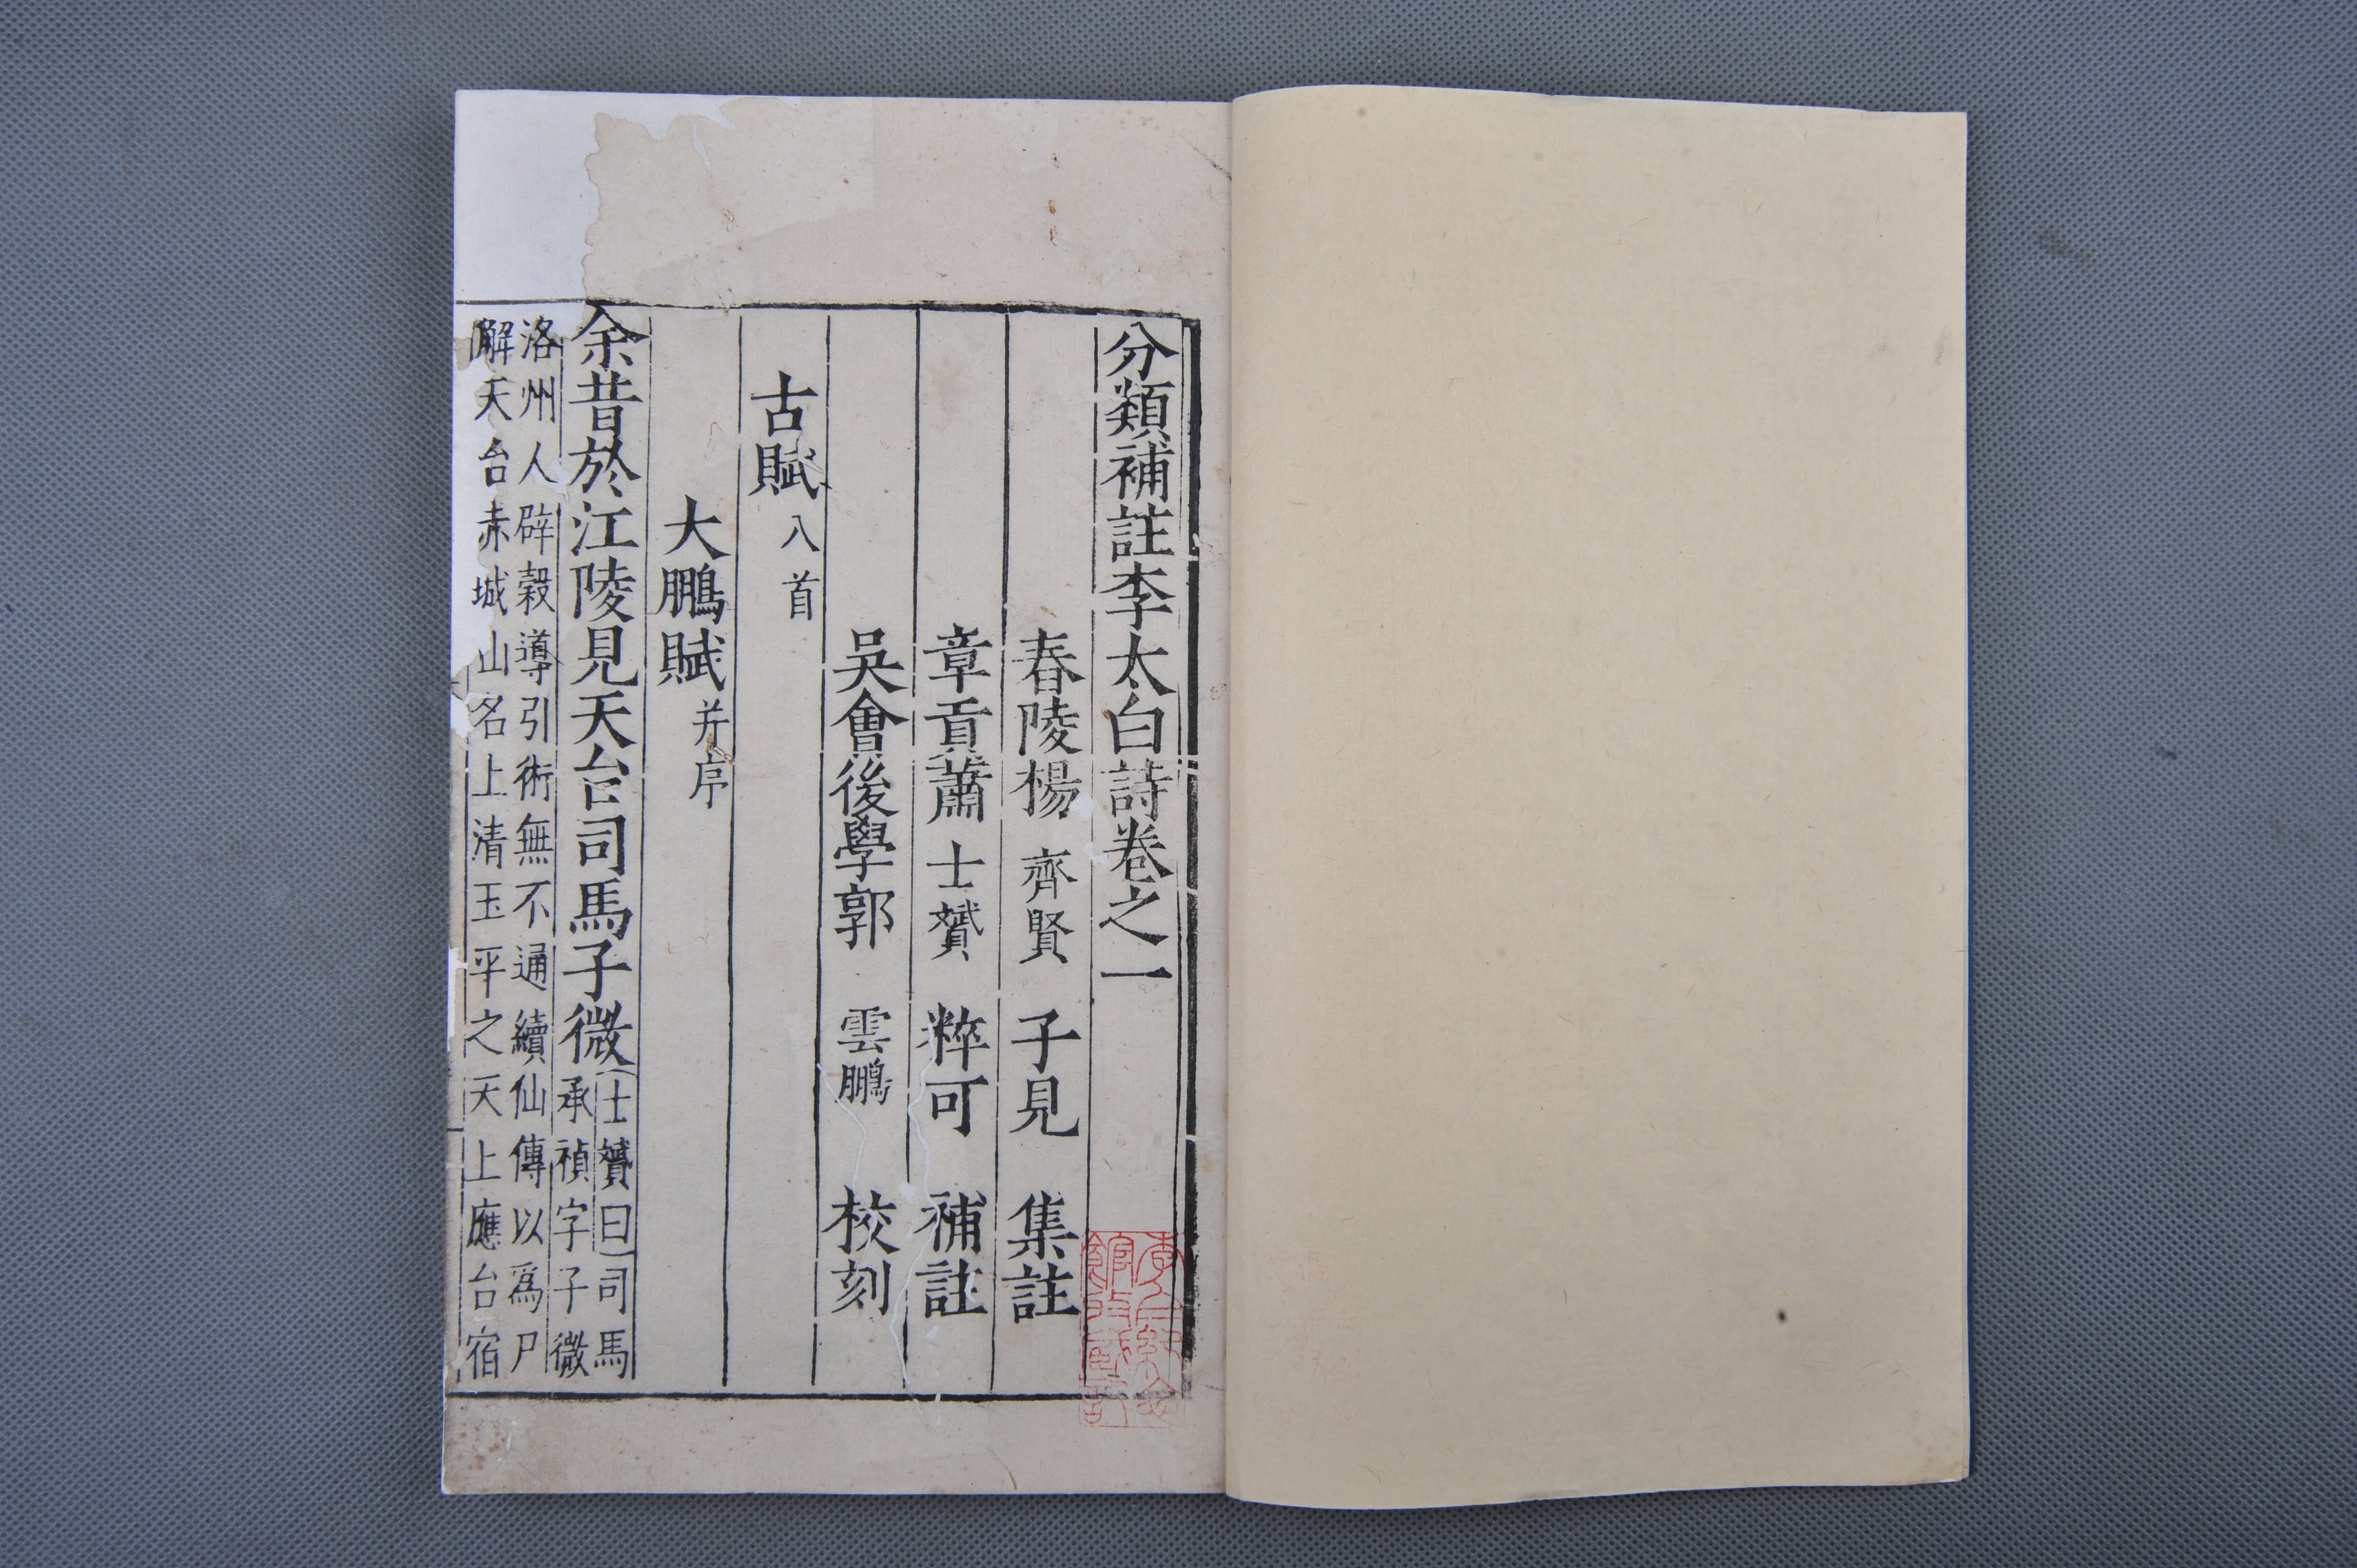 分類補註李太白詩卷之一
春陵楊 齊賢 子見 集註
章貢蕭 士贇 粹可 補註
吳會後學郭 雲鵬 校刻
古賦八首
大鵬賦并序
余昔於江陵見天台司馬子微士贇曰司馬
承禎字子微
洛州人辟穀導引術無不通續仙傳以爲尸
解天台赤城山名上清玉平之天上應台宿